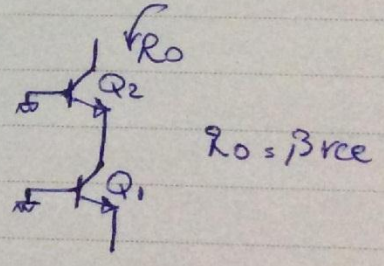 Ro
Q2
Ro = βrce
Q1